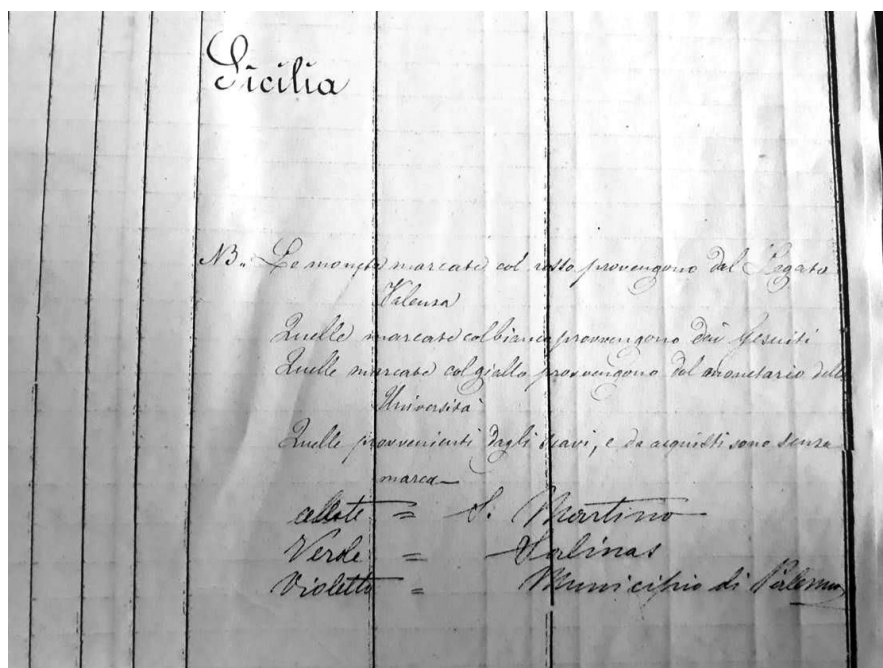 Sicilia
NB. Le monete marcate col rosso provengono dal Legato
Valenza
Quelle marcate col bianco provvengono dai Gesuiti
Quelle marcate col giallo provvengono dal monetario della
Università
Quelle provvenienti dagli scavi, e da acquisti sono senza
marca—
celeste = S. Martino
Verde = Salinas
Violetto = Municipio di Palermo